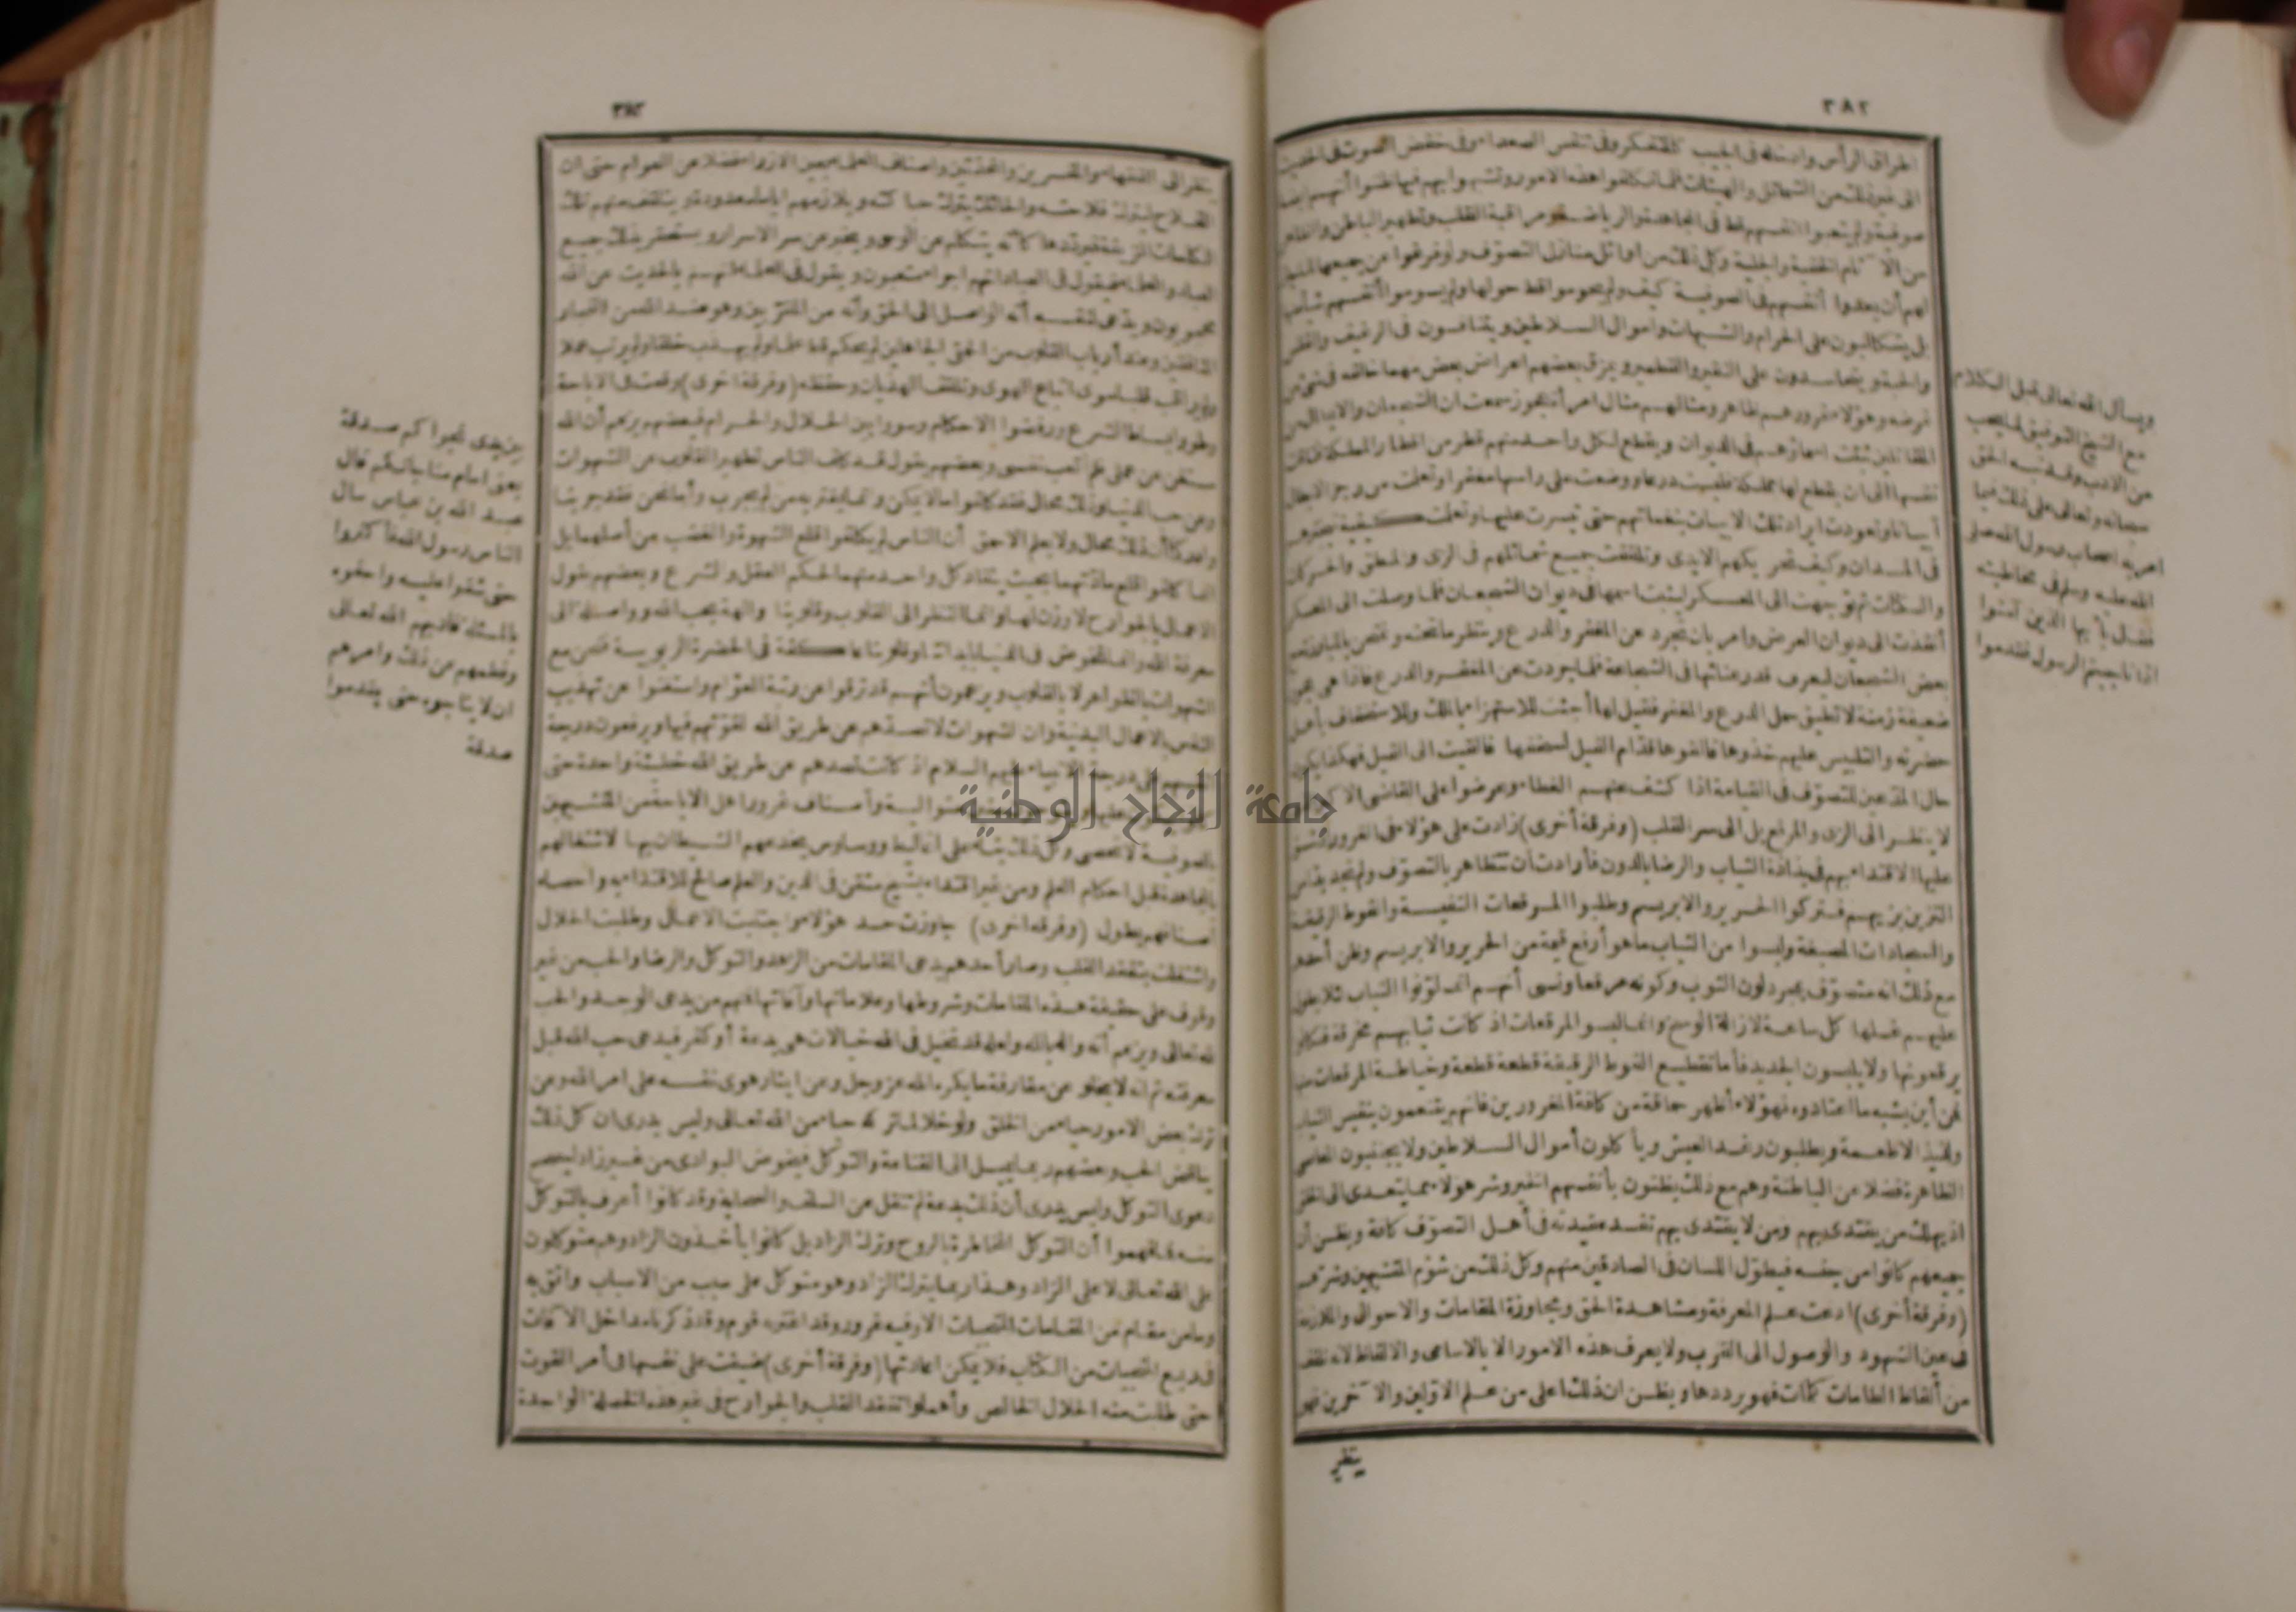 ٣٨٢
اطراق الرأس وادخاله فى الجيب كالمتفكر وفى تنفس الصعداء وفى خفض الصوت فى الحديث
الى غير ذلك من الشمائل والهيئات فلما تكلفوا هذه الامور وتشبهوا بهم فيها ظنوا أنهم ايضا
صوفية ولم يتعبوا انفسهم قط فى المجاهدة والرياضة ومراقبة القلب وتطهير الباطن والظاهر
من الآثام الخفية والجلية وكل ذلك من اوائل منازل التصوّف ولو فرغوا من جميعها لما جاز
لهم أن يعدوا أنفسهم فى الصوفية كيف ولم يحوموا قط حولها ولم يسوموا أنفسهم شيأ منها
بل يتكالبون على الحرام والشبهات واموال السلاطين ويتنافسون فى الرغيف والفلس
والحبة ويتحاسدون على النقير والقطمير ويمزق بعضهم اعراض بعض مهما خالفه فى شئ من
غرضه وهؤلاء غرورهم ظاهر ومثالهم مثال امرأة عجوز سمعت ان الشجعان والابطال من
المقاتلين ثبتت اسماؤهم فى الديوان ويقطع لكل واحد منهم قطر من اقطار المملكة فتاقت
نفسها الى ان يقطع لها مملكة فلبست درعا ووضعت على رأسها مغفرا وتعلمت من رجز الابطال
أبياتا وتعودت ايراد تلك الابيات بنغماتهم حتى تيسرت عليها وتعلمت كيفية تبخترهم
فى الميدان وكيف تحريكهم الايدى وتلقفت جميع شمائلهم فى الزى والمنطق والحركات
والسكنات ثم توجهت الى المعسكر ليثبت اسمها فى ديوان الشجعان فلما وصلت الى المعسكر
أنفذت الى ديوان العرض وامر بان تجرد عن المغفر والدرع وينظر ما تحته وتمتحن بالمبارزة مع
بعض الشجعان ليعرف قدر عنائها فى الشجاعة فلما جردت عن المغفر والدرع فاذا هى عجوز
ضعيفة زمنة لا تطيق حمل الدرع والمغفر فقيل لها أجئت للاستهزاء بالملك وللاستخفاف بأهل
حضرته والتلبيس عليهم خذوها فالقوها قدّام الفيل لسخفها فالقيت الى الفيل فهكذا يكون
حال المدّعين للتصوّف فى القيامة اذا كشف عنهم الغطاء وعرضوا على القاضى الاكبر الذى
لا ينظر الى الزى والمرقع بل الى سر القلب (وفرقة أخرى) زادت على هؤلاء فى الغرور اذ شق
عليها الاقتداء بهم فى بذاذة الثياب والرضا بالدون فأرادت أن تتظاهر بالتصوّف ولم تجد بدا من
التزين بزيهم فتركوا الحرير والابريسم وطلبوا المرقعات النفيسة والفوط الرقيقة
والسجادات المصبغة ولبسوا من الثياب ما هو أرفع قيمة من الحرير والابريسم وظن أحدهم
مع ذلك انه متصوّف بمجرد لون الثوب وكونه مرقعا ونسى أنهم انما لوّنوا الثياب لئلا يطول
عليهم غسلها كل ساعة لازالة الوسخ وانما لبسوا المرقعات اذ كانت ثيابهم مخرقة فكانوا
يرقعونها ولا يلبسون الجديد فأما تقطيع الفوط الرقيقة قطعة قطعة وخياطة المرقعات منها
فمن أين يشبه ما اعتادوه فهؤلاء أظهر حماقة من كافة المغرورين فانهم يتنعمون بنفيس الثياب
ولذيذ الاطعمة ويطلبون رغد العيش ويأكلون أموال السلاطين ولا يجتنبون المعاصى
الظاهرة فضلا عن الباطنة وهم مع ذلك يظنون بأنفسهم الخير وشر هؤلاء مما يتعدى الى الخلق
اذ يهلك من يقتدى بهم ومن لا يقتدى بهم تفسد عقيدته فى أهل التصوّف كافة ويظن أن
جميعهم كانوا من جنسه فيطوّل اللسان فى الصادقين منهم وكل ذلك من شؤم المتشبهين وشرهم
(وفرقة أخرى) ادعت علم المعرفة ومشاهدة الحق ومجاوزة المقامات والاحوال والملازمة
فى عين الشهود والوصول الى القرب ولا يعرف هذه الامور الا بالاسامى والالفاظ لانه تلقف
من ألفاظ الطامات كلمات فهو يرددها ويظن ان ذلك اعلى من علم الاوّلين والآخرين فهو
ينظر
ويسأل الله تعالى قبل الكلام
مع الشيخ التوفيق لما يجب
من الادب وقد نبه الحق
سبحانه وتعالى على ذلك فيما
امر به اصحاب رسول الله صلى
الله عليه وسلم فى مخاطبته
فقال يأيها الذين آمنوا
اذا ناجيتم الرسول فقدموا
٣٨٣
ينظر الى الفقهاء والمفسرين والمحدّثين واصناف العلماء بعين الازراء فضلا عن العوام حتى ان
الفلاح ليترك فلاحته والحائك يترك حياكته ويلازمهم اياما معدودة ويتلقف منهم تلك
الكلمات المزيفة فيرددها كأنه يتكلم عن الوحى ويخبر عن سر الاسرار ويستحقر بذلك جميع
العباد والعلماء فيقول فى العباد انهم اجراء متعبون ويقول فى العلماء انهم بالحديث عن الله
محجوبون ويدّعى لنفسه أنه الواصل الى الحق وأنه من المقرّبين وهو عند الله من الفجار
المنافقين وعند أرباب القلوب من الحمقى الجاهلين لم يحكم قط علما ولم يهذب خلقا ولم يرتب عملا
ولم يراقب قلبا سوى اتباع الهوى وتلقف الهذيان وحفظه (وفرقة اخرى) وقعت فى الاباحة
وطووا بساط الشرع ورفضوا الاحكام وسووا بين الحلال والحرام فبعضهم يزعم أن الله
مستغن عن عملى فلم أتعب نفسى وبعضهم يقول قد كلف الناس تطهير القلوب عن الشهوات
وعن حب الدنيا وذلك محال فقد كلفوا ما لا يمكن وانما يغتر به من لم يجرب وأما نحن فقد جربنا
وادركنا أن ذلك محال ولا يعلم الاحمق أن الناس لم يكلفوا قلع الشهوة والغضب من أصلهما بل
انما كلفوا قلع مادّتهما بحيث ينقاد كل واحد منهما لحكم العقل والشرع وبعضهم يقول
الاعمال بالجوارح لا وزن لها وانما النظر الى القلوب وقلوبنا والهة بحب الله وواصلة الى
معرفة الله وانما نخوض فى الدنيا بابداننا وقلوبنا عاكفة فى الحضرة الربوبية فنحن مع
الشهوات بالظواهر لا بالقلوب ويزعمون أنهم قد ترقوا عن رتبة العوّام واستغنوا عن تهذيب
النفس بالاعمال البدنية وان الشهوات لا تصدّهم عن طريق الله لقوّتهم فيها ويرفعون درجة
أنفسهم على درجة الانبياء عليهم السلام اذ كانت تصدهم عن طريق الله خطيئة واحدة حتى
كانوا يبكون عليها وينوحون سنين متوالية وأصناف غرور اهل الاباحة من المتشبهين
بالصوفية لا تحصى وكل ذلك بناء على اغاليط ووساوس يخدعهم الشيطان بها لاشتغالهم
بالمجاهدة قبل احكام العلم ومن غير اقتداء بشيخ متقن فى الدين والعلم صالح للاقتداء به واحصاء
أصنافهم يطول (وفرقة اخرى) جاوزت حد هؤلاء واجتنبت الاعمال وطلبت الحلال
واشتغلت بتفقد القلب وصار أحدهم يدعى المقامات من الزهد والتوكل والرضا والحب من غير
وقوف على حقيقة هذه المقامات وشروطها وعلاماتها وآفاتها فمنهم من يدعى الوجد والحب
لله تعالى ويزعم أنه واله بالله ولعله قد تخيل فى الله خيالات هى بدعة أو كفر فيدعى حب الله قبل
معرفته ثم انه لا يخلو عن مقارفة ما يكره الله عز وجل وعن ايثار هوى نفسه على امر الله وعن
ترك بعض الامور حياء من الخلق ولو خلا لما تركه حياء من الله تعالى وليس يدرى ان كل ذلك
يناقض الحب وبعضهم ربما يميل الى القناعة والتوكل فيخوض البوادى من غير زاد ليصحح
دعوى التوكل وليس يدرى أن ذلك بدعة لم تنقل عن السلف والصحابة وقد كانوا أعرف بالتوكل
منه فما فهموا أن التوكل المخاطرة بالروح وترك الزاد بل كانوا يأخذون الزاد وهم متوكلون
على الله تعالى لا على الزاد وهذا ربما يترك الزاد وهو متوكل على سبب من الاسباب واثق به
وما من مقام من المقامات المنجيات الا وفيه غرور وقد اغتر به قوم وقد ذكرنا مداخل الآفات
فى ربع المنجيات من الكتاب فلا يمكن اعادتها (وفرقة أخرى) ضيقت على نفسها فى أمر القوت
حتى طلبت منه الحلال الخالص وأهملوا تفقد القلب والجوارح فى غير هذه الخصلة الواحدة
بين يدى نجواكم صدقة
يعنى امام مناجاتكم قال
عبد الله بن عباس سأل
الناس رسول الله فأكثروا
حتى شقوا عليه واحفوه
بالمسئلة فأدبهم الله تعالى
وفطمهم عن ذلك وامرهم
ان لا يناجوه حتى يقدموا
صدقة
جامعة النجاح الوطنية